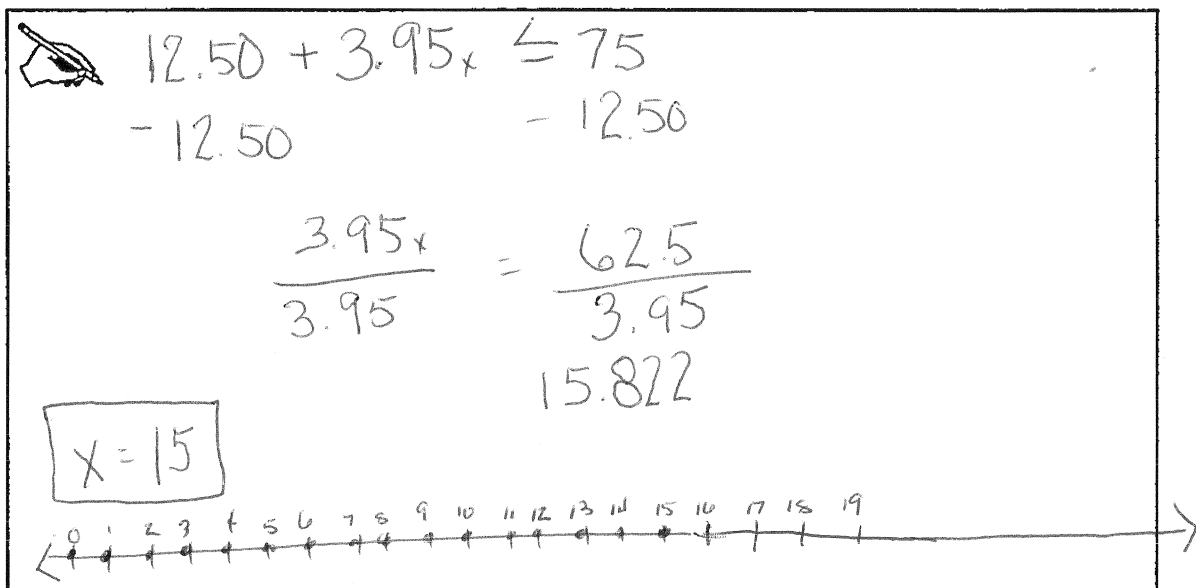 12.50 + 3.95x ≤ 75
- 12.50 - 12.50
3.95x = 62.5
3.95 3.95
15.822
x = 15
0 1 2 3 4 5 6 7 8 9 10 11 12 13 14 15 16 17 18 19